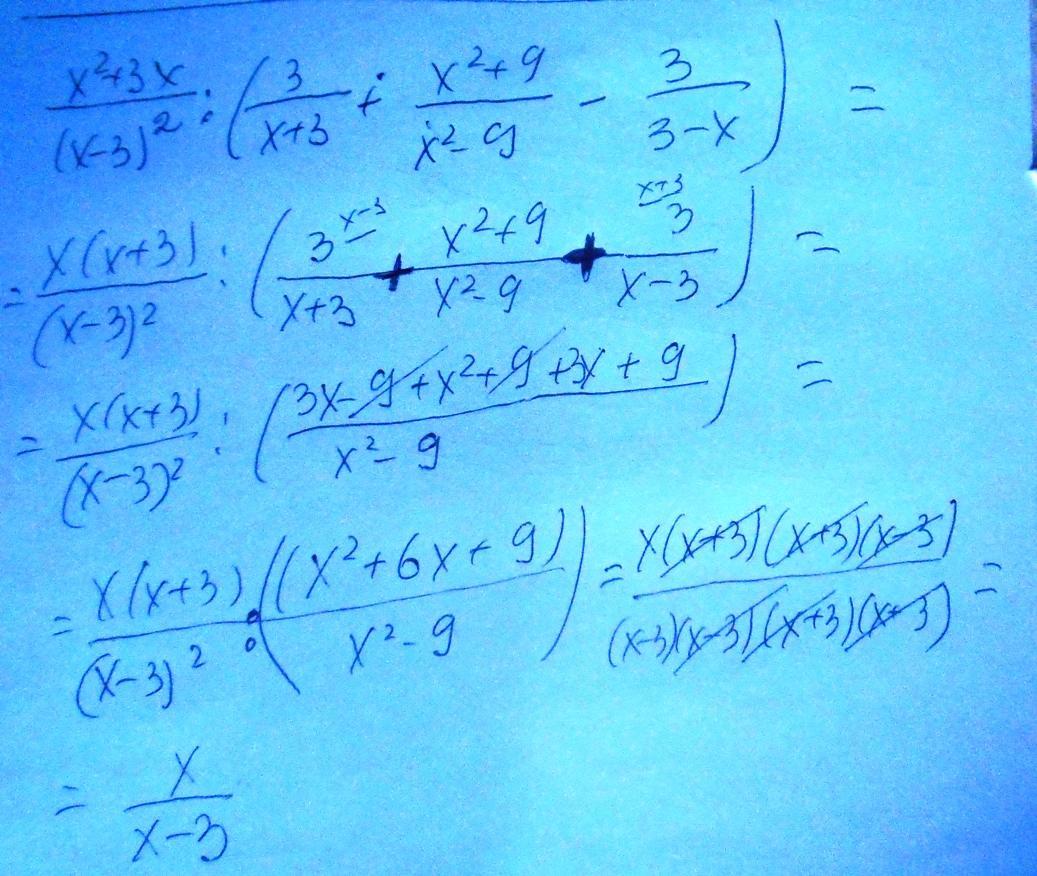 x²+3x/(x-3)² : (3/x+3 + x²+9/x²-9 - 3/3-x) =
= x(x+3)/(x-3)² : (3 x-3/x+3 + x²+9/x²-9 + x+3 3/x-3) =
= x(x+3)/(x-3)² : (3x-9+x²+9+3x+9/x²-9) =
= x(x+3)/(x-3)² : ((x²+6x+9)/x²-9) = x(x+3)(x+3)(x-3)/(x-3)(x-3)(x+3)(x+3) =
= x/x-3